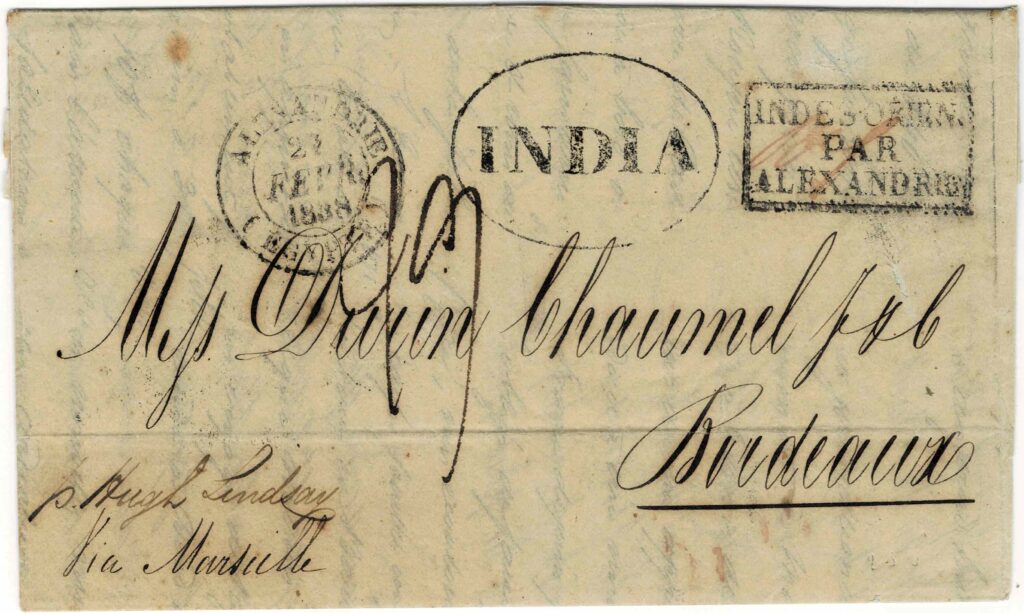 ALEXANDRIE
27
FEVR.
1838
(EGYPTE)
INDIA
INDES ORIEN.
PAR
ALEXANDRIE
Mess Chaumel f & C
Bordeaux
p. Hugh Lindsay
Via Marseille